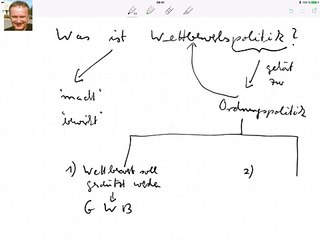 Was ist Wettbewerbspolitik?
gehört
zur
"macht"
"bewirkt"
Ordnungspolitik
1) Wettbewerb soll
geschützt werden
2)
GWB